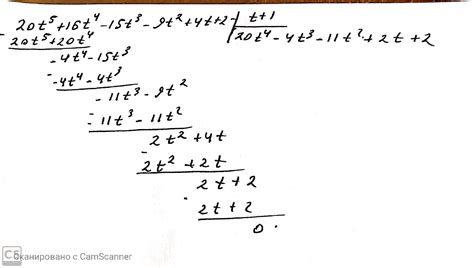 20t⁵+16t⁴-15t³-9t²+4t+2 | t+1
20t⁵+20t⁴ | 20t⁴-4t³-11t²+2t+2
-4t⁴-15t³
-4t⁴-4t³
-11t³-9t²
-11t³-11t²
2t²+4t
2t²+2t
2t+2
2t+2
0
CS Сканировано с CamScanner